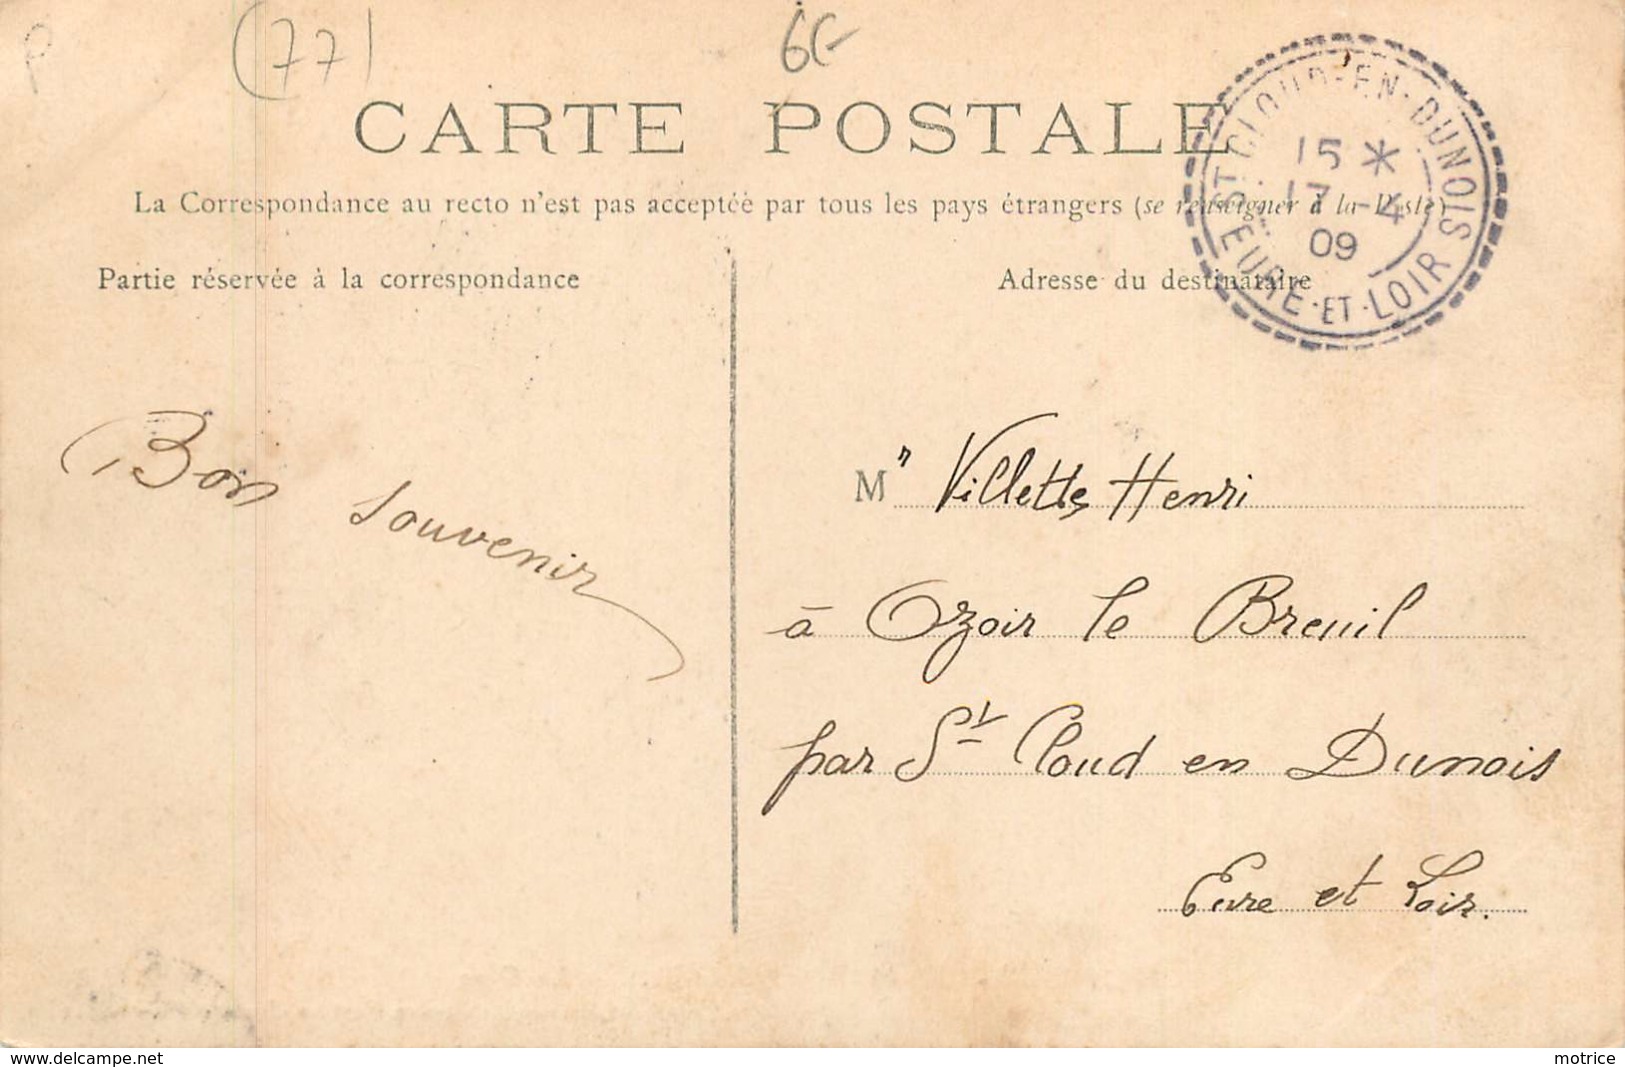 P
(77)
6€
CARTE POSTALE
La Correspondance au recto n'est pas acceptée par tous les pays étrangers (se renseigner à la Poste)
ST CLOUD-EN-DUNOIS
15 *
17 -4
09
EURE-ET-LOIR
Partie réservée à la correspondance
Adresse du destinataire
Bon souvenir
Mr Villette Henri
à Ozoir le Breuil
par St Cloud en Dunois
Eure et Loir.
www.delcampe.net
motrice